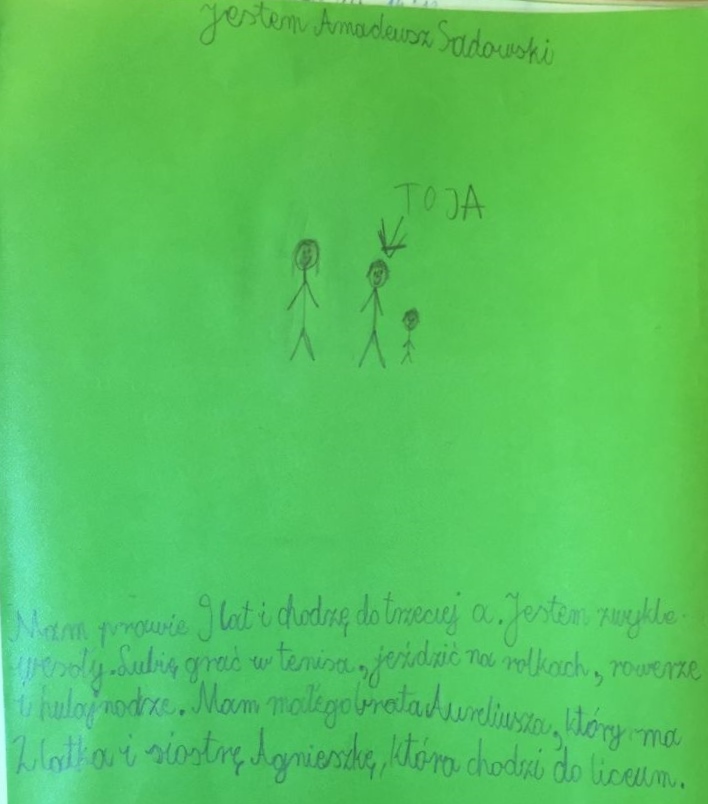 Jestem Amadeusz Sadowski
TO JA
Mam prawie 9 lat i chodzę do trzeciej a. Jestem zwykle
wesoły. Lubię grać w tenisa, jeździć na rolkach, rowerze
i hulajnodze. Mam małego brata Aureliusza, który ma
2 latka i siostrę Agnieszkę, która chodzi do liceum.